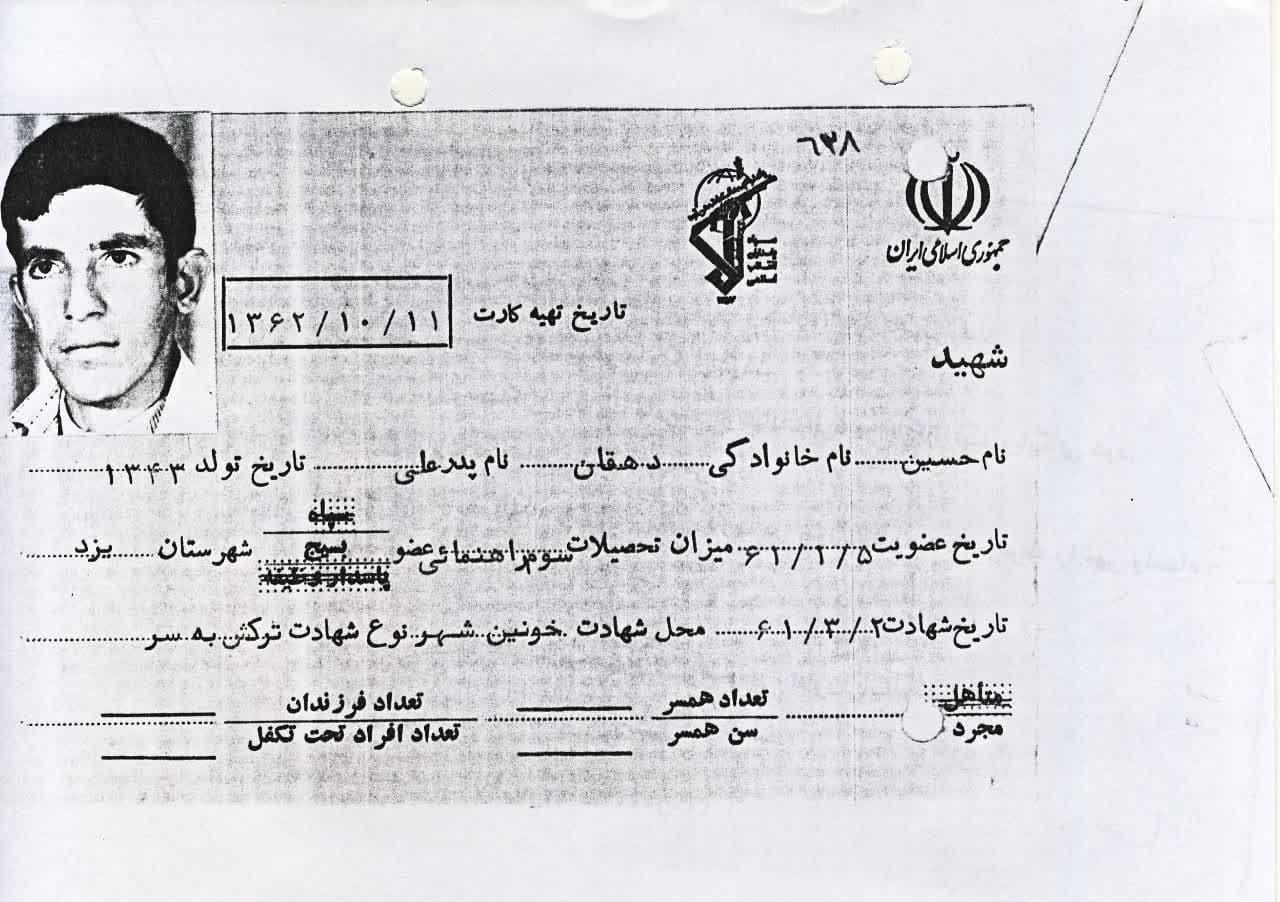 ۶۳۸
جمهوری اسلامی ایران
تاریخ تهیه کارت ۱۳۶۲/۱۰/۱۱
شهید
نام حسین نام خانوادگی دهقان نام پدر علی تاریخ تولد ۱۳۴۳
سپاه
تاریخ عضویت ۶۲/۲/۵ میزان تحصیلات سوم راهنمائی عضو بسیج شهرستان یزد
پاسدار وظیفه
تاریخ شهادت ۶۱/۳/۲ محل شهادت خونین شهر نوع شهادت ترکش به سر
متأهل تعداد همسر تعداد فرزندان
مجرد سن همسر تعداد افراد تحت تکفل